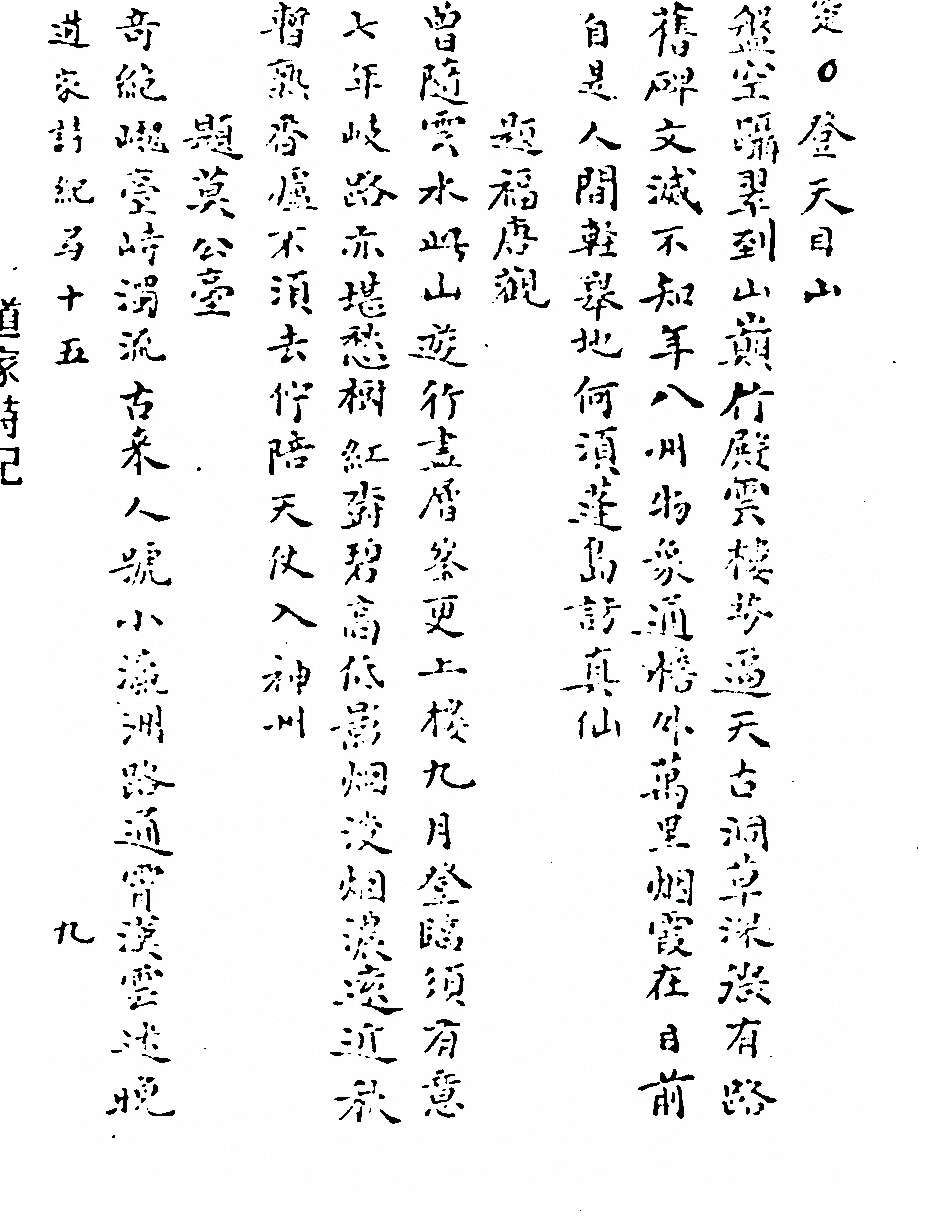 登天目山
盤空躡翠到山巔竹殿雲樓勢逼天古洞草深微有路
舊碑文滅不知年八州物象通簷外萬里烟霞在目前
自是人間軽舉地何須蓬島訪真仙
題福唐觀
曾隨雲水此山遊行盡層峯更上樓九月登臨須有意
七年岐路亦堪愁樹紅樹碧高低影烟淡烟濃遠近秋
暫熟香爐不須去佇陪天仗入神州
題莫公臺
奇絶巍臺峙濁流古來人號小瀛洲路通霄漢雲迷晚
道家詩紀弓十五 九
道家詩記